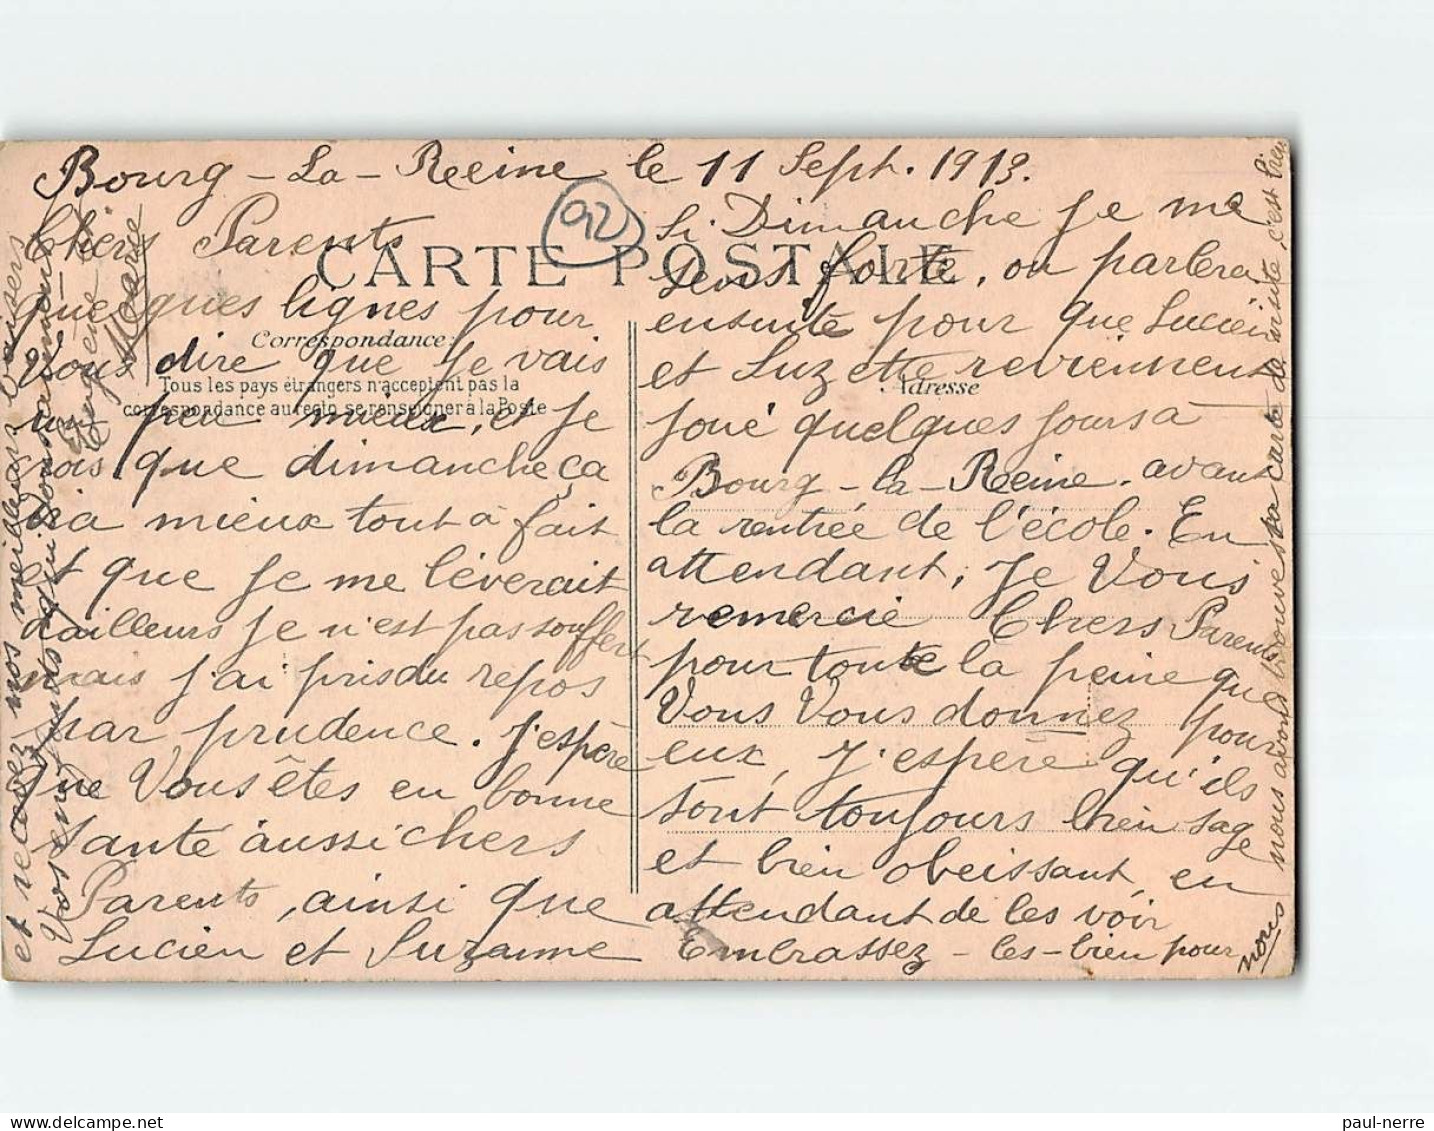 Bourg-La-Reeine le 11 Sept. 1913.
92
CARTE POSTALE
Correspondance:
Tous les pays étrangers n'acceptent pas la
correspondance au recto se renseigner à la Poste
Adresse
Chers Parents
Quelques lignes pour
Vous dire que Je vais
un peu mieux, et Je
vois que dimanche ça
ira mieux tout à fait
et que Je me lèverait
d'ailleurs Je n'est pas souffert
mais J'ai pris du repos
par prudence. J'espère
que Vous êtes en bonne
santé aussi chers
Parents, ainsi que
Lucien et Suzanne
Si Dimanche Je me
sens forte, on parlera
ensuite pour que Lucien
et Suzette reviennent
joué quelques jours à
Bourg-la-Reeine. avant
la rentrée de l'école. En
attendant, Je Vous
remercie Chers Parents
pour toute la peine que
Vous Vous donnez pour
eux, J'espère qu'ils
sont toujours bien sage
et bien obeissant, en
attendant de les voir
Embrassez-les-bien pour
nous
nous avons trouvé sa carte de suite c'est bien
et recevez nos meilleurs baisers
Vos enfants qui Vous aiment
Eugène
Marie
paul-nerre